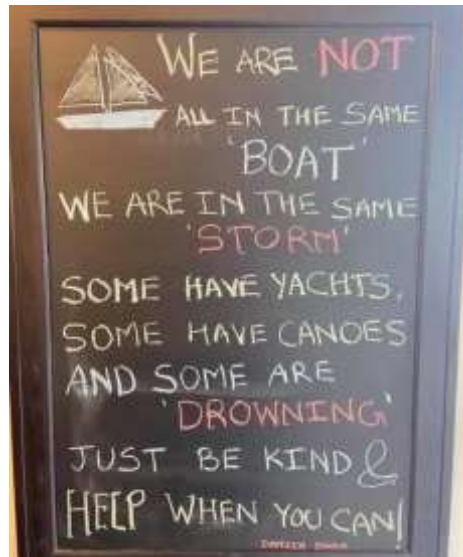 WE ARE NOT
ALL IN THE SAME
'BOAT'
WE ARE IN THE SAME
'STORM'
SOME HAVE YACHTS,
SOME HAVE CANOES
AND SOME ARE
'DROWNING'
JUST BE KIND &
HELP WHEN YOU CAN!